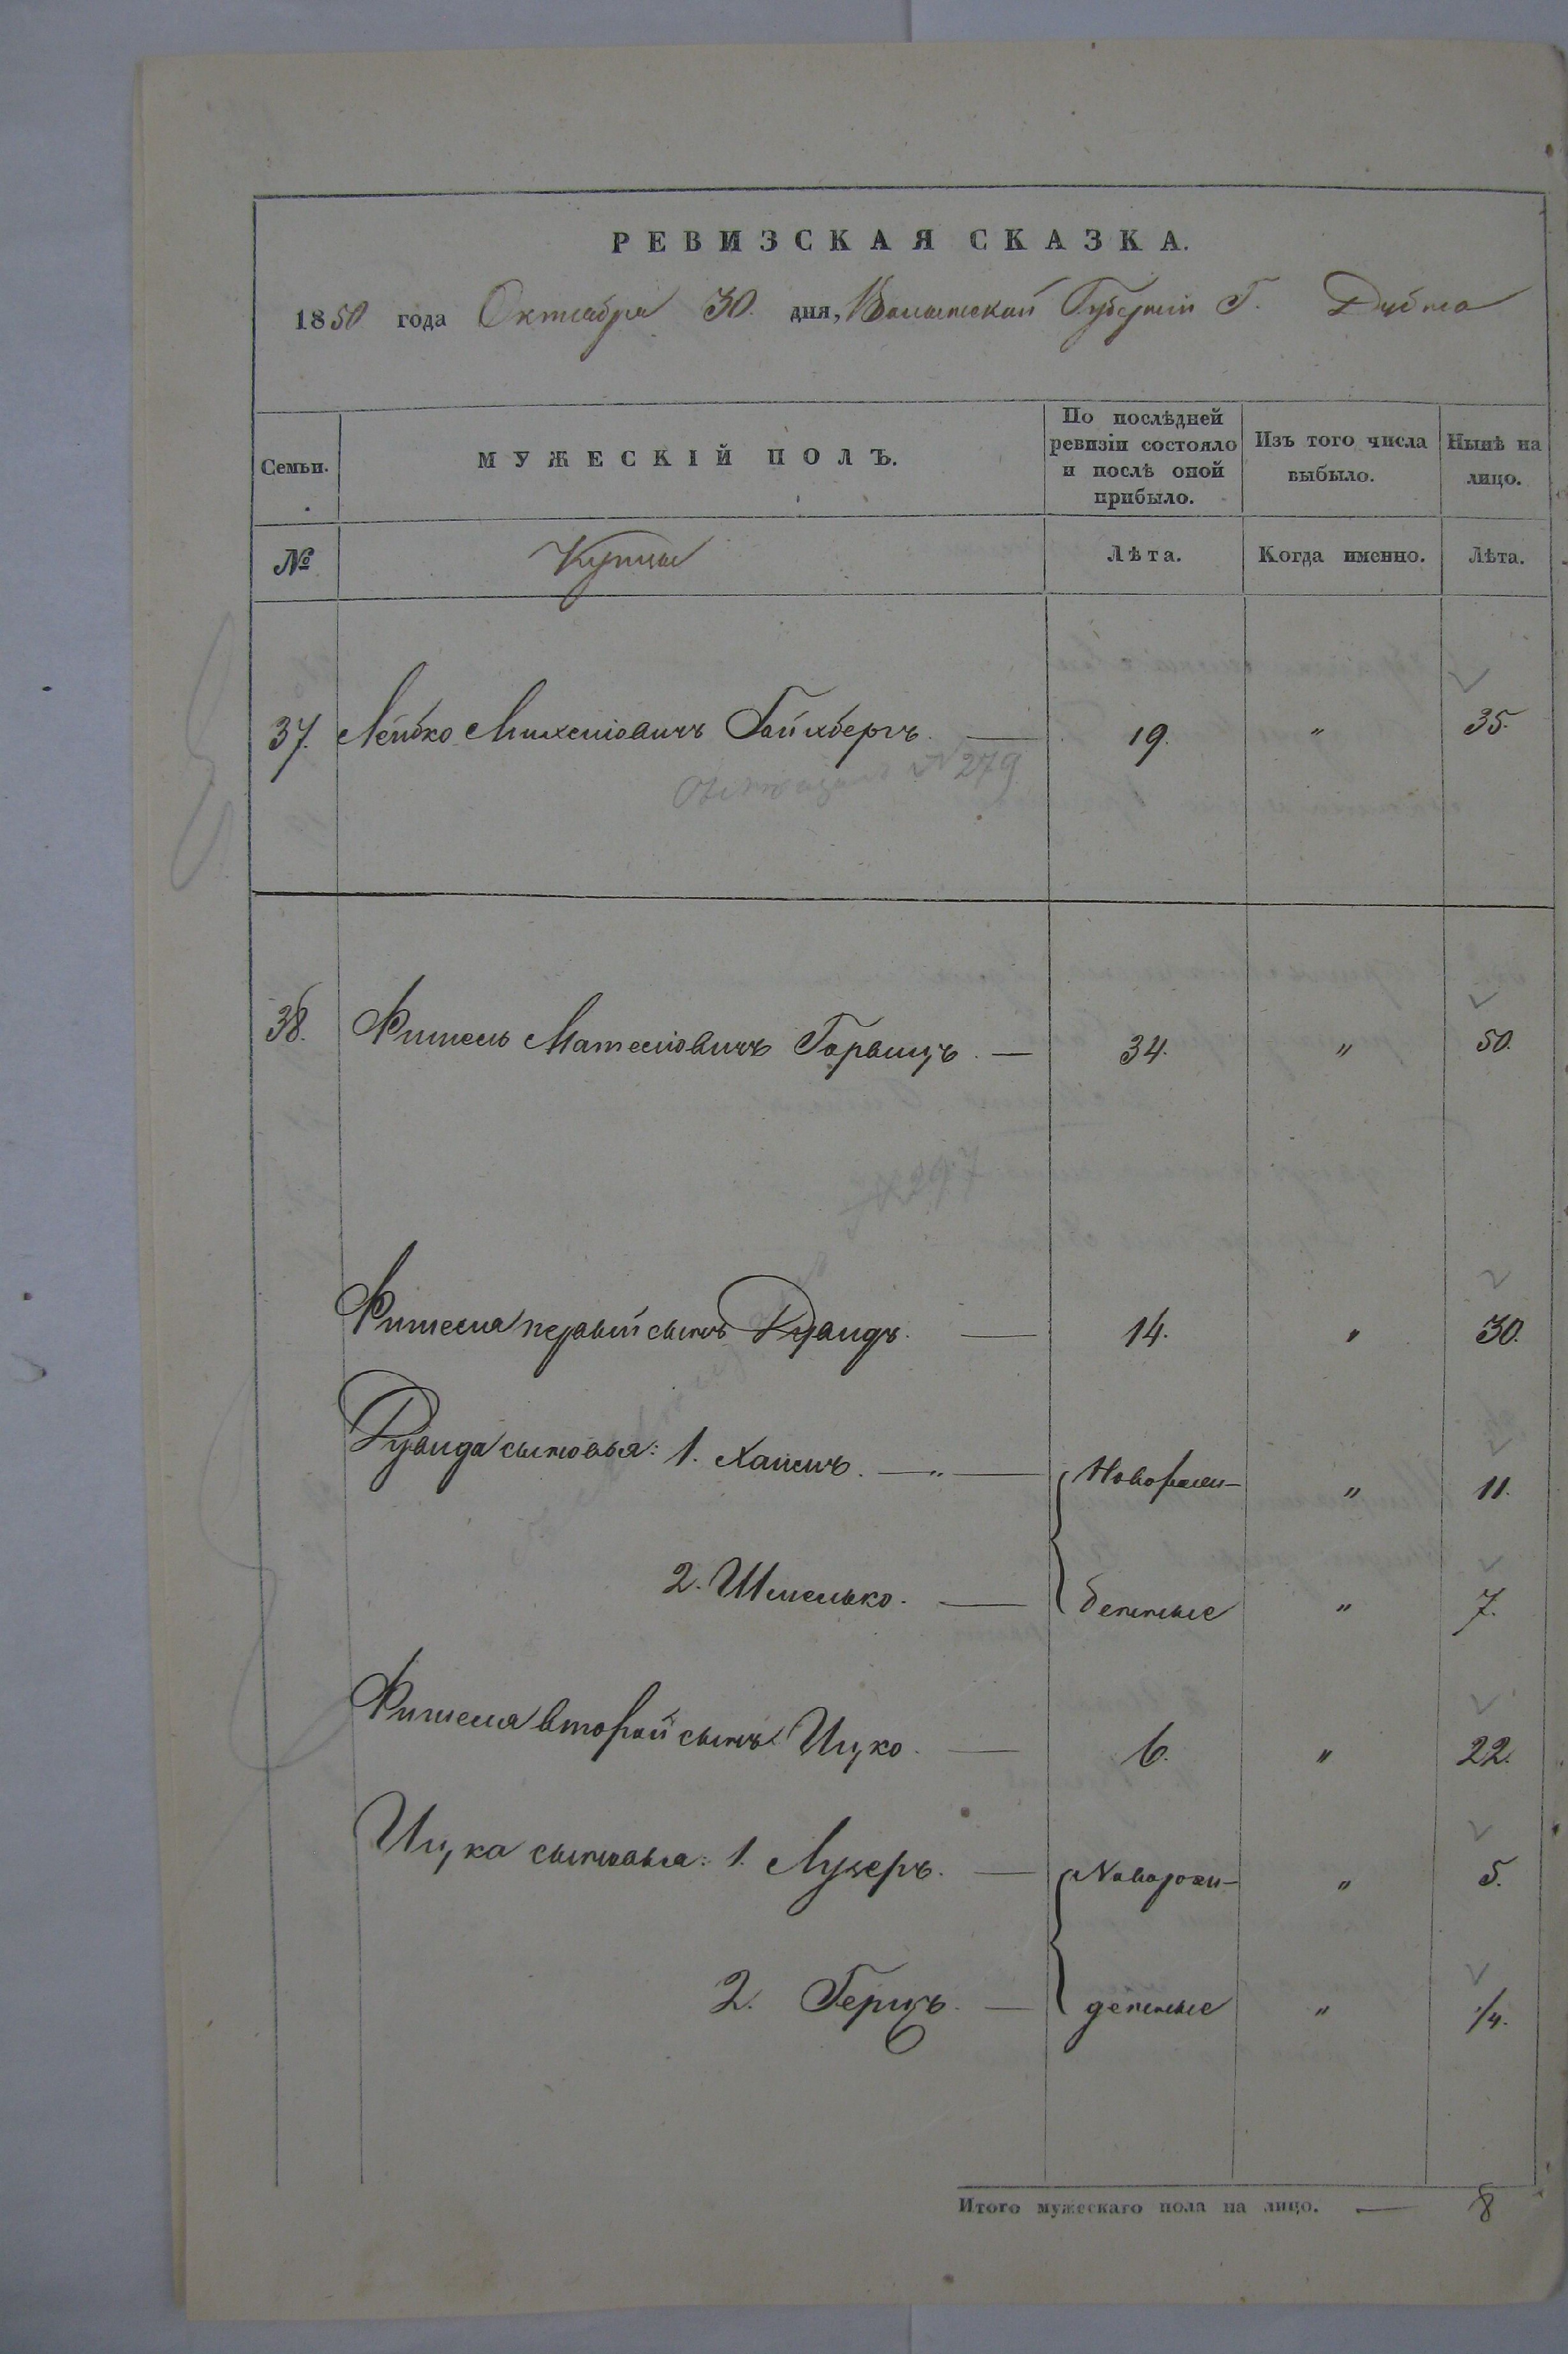 РЕВИЗСКАЯ СКАЗКА.
1850 года Октября 30. дня, Волынской Губерніи Г. Дубно
Семьи.
МУЖЕСКІЙ ПОЛЪ.
По послѣдней ревизіи состояло и послѣ оной прибыло.
Изъ того числа выбыло.
Нынѣ на лицо.
№ Купцы Лѣта. Когда именно. Лѣта.
37. Лейбко Михелiовичъ 19. " 35.
№ 279
38. Фишель Мателiовичъ Горвицъ. — 34. " 50.
№ 297
Фишеля первый сынъ Дувидъ. — 14. " 30.
Дувида сыновья: 1. Хаимъ. — " — Новорож- " 11.
2. Шмелько. — денные " 7.
Фишеля второй сынъ Ицко. — 6. " 22.
Ицка сыновья: 1. Лузеръ. — Новорож- " 5.
2. Герцъ. — денные " 1/4.
Итого мужескаго пола на лицо. — 8